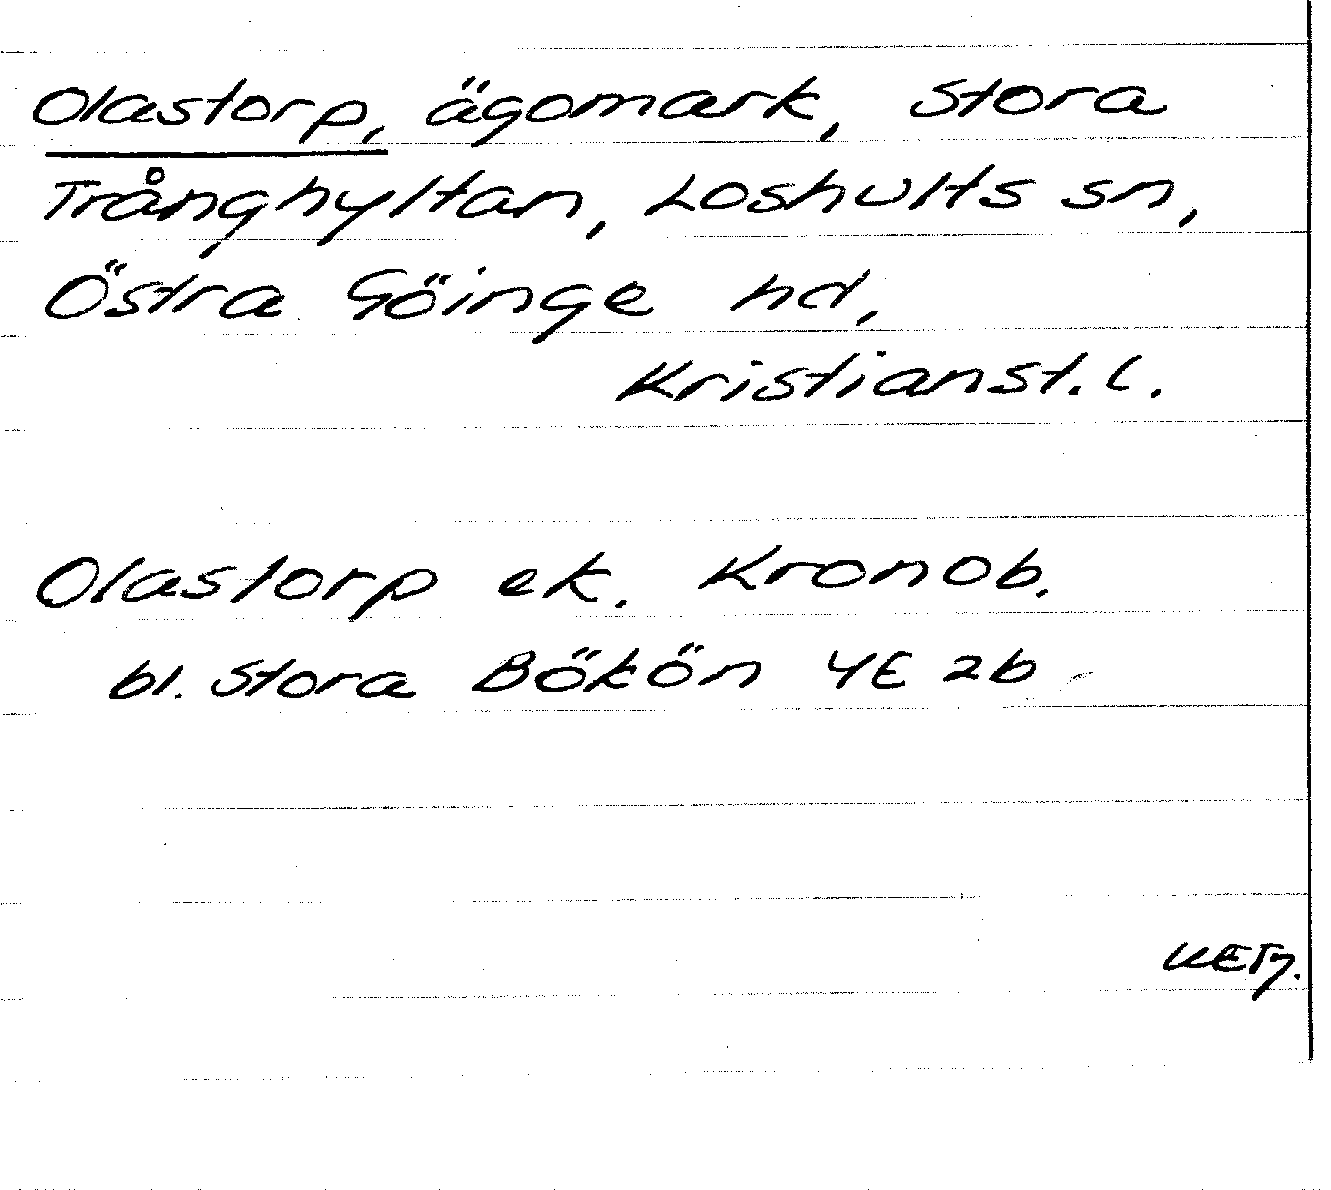 Olastorp, ägomark, Stora
Trånghyltan, Loshults sn,
Östra Göinge hd,
Kristianst. l.
Olastorp ek. Kronob.
bl. Stora Bökön 4E 2b